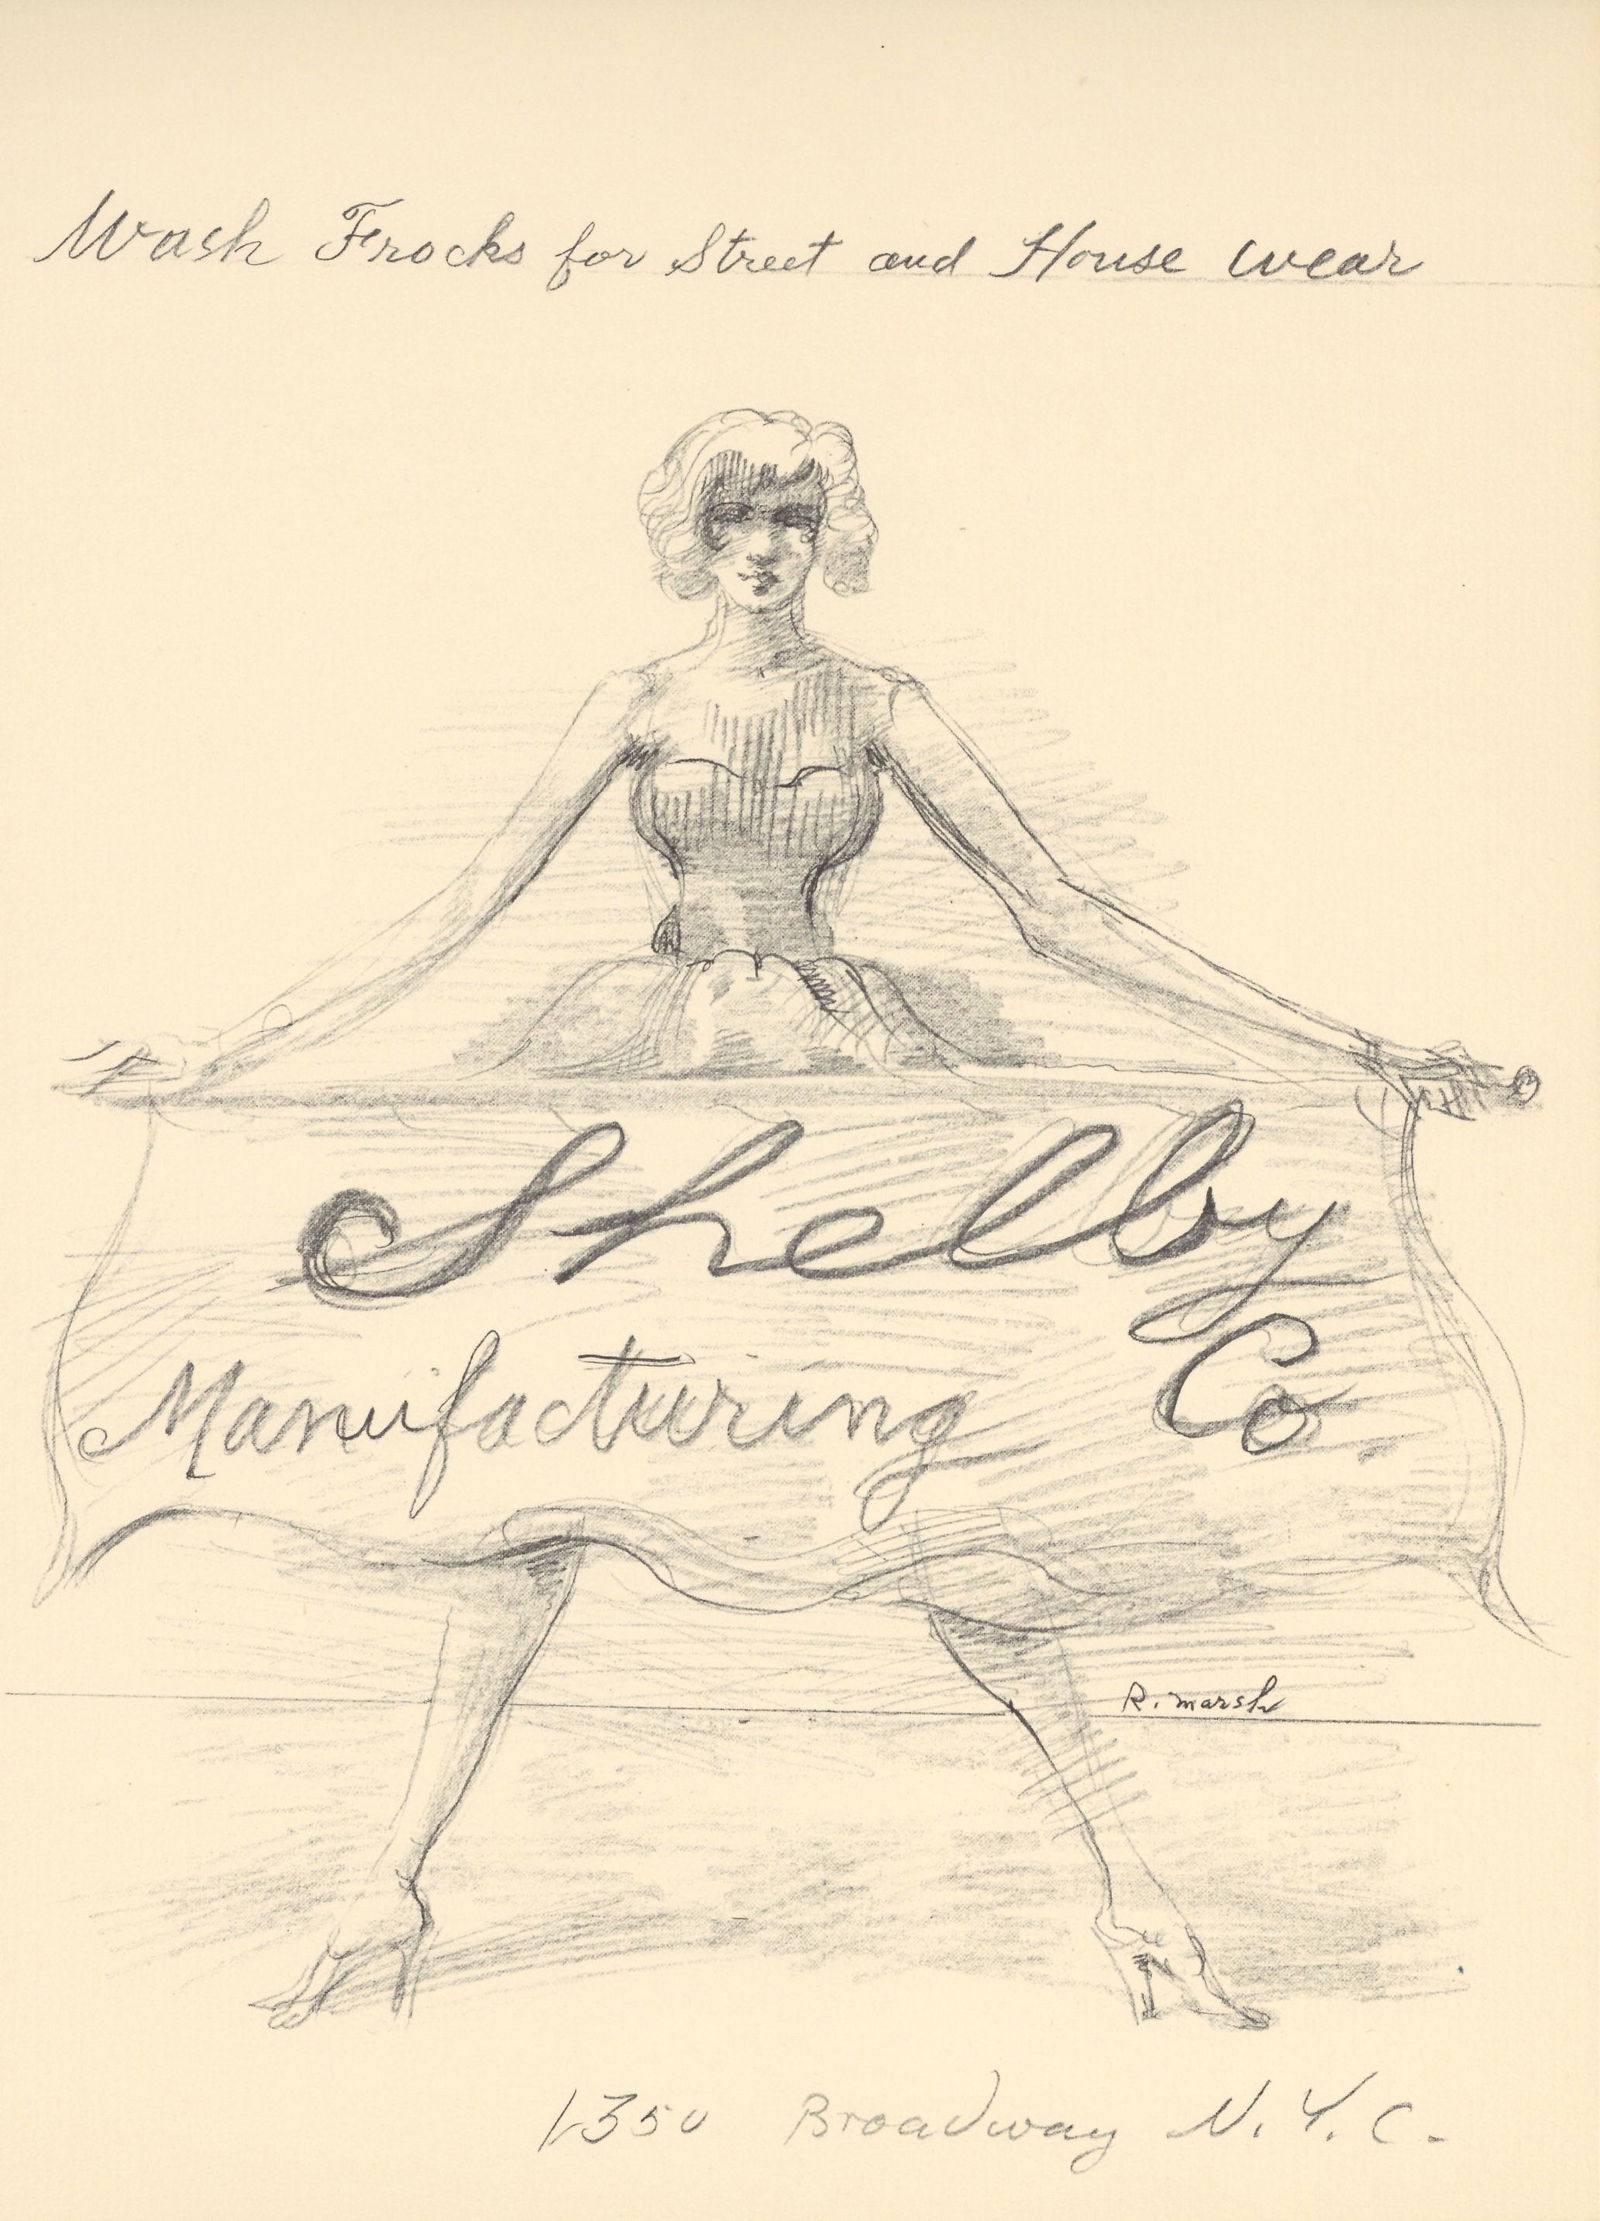 Wash Frocks for Street and House wear
Shelby
Manufacturing Co.
R. Marsh
1350 Broadway N.Y.C.